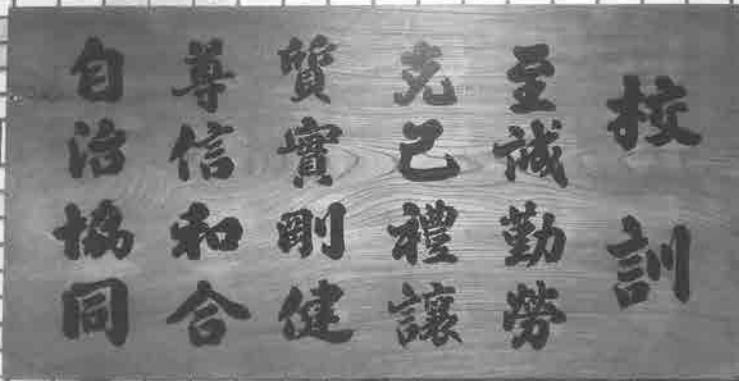 校訓
至誠勤勞
克己禮讓
質實剛健
尊信和合
自治協同